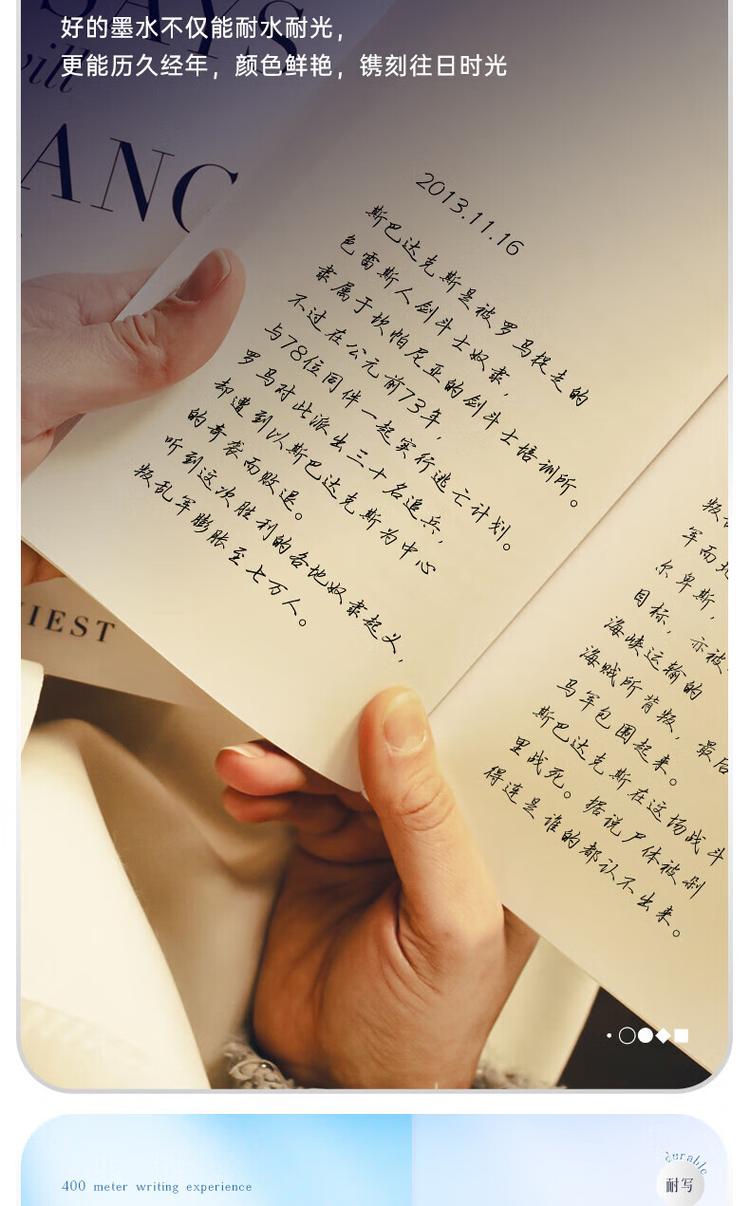 好的墨水不仅能耐水耐光，
更能历久经年，颜色鲜艳，镌刻往日时光
SAYS
will
ANC
2013.11.16
斯巴达克斯是被罗马捉走的
色雷斯人剑斗士奴隶，
隶属于坎帕尼亚的剑斗士培训所。
不过在公元前73年，
与78位同伴一起实行逃亡计划。
罗马对此派出三十名追兵，
却遭到以斯巴达克斯为中心
的奇袭而败退。
听到这次胜利的各地奴隶起义，
叛乱军膨胀至七万人。
IEST
军而北
尔卑斯，
目标，亦被
海峡运输的
海贼所背叛，最后
马军包围起来。
斯巴达克斯在这场战斗
里战死。据说尸体被剁
得连是谁的都认不出来。
400 meter writing experience
durable
耐写